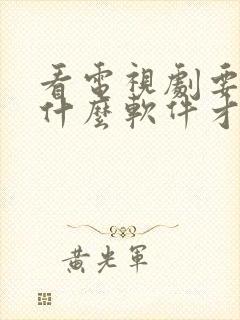 看電視劇要
什麼軟件才
黃光軍